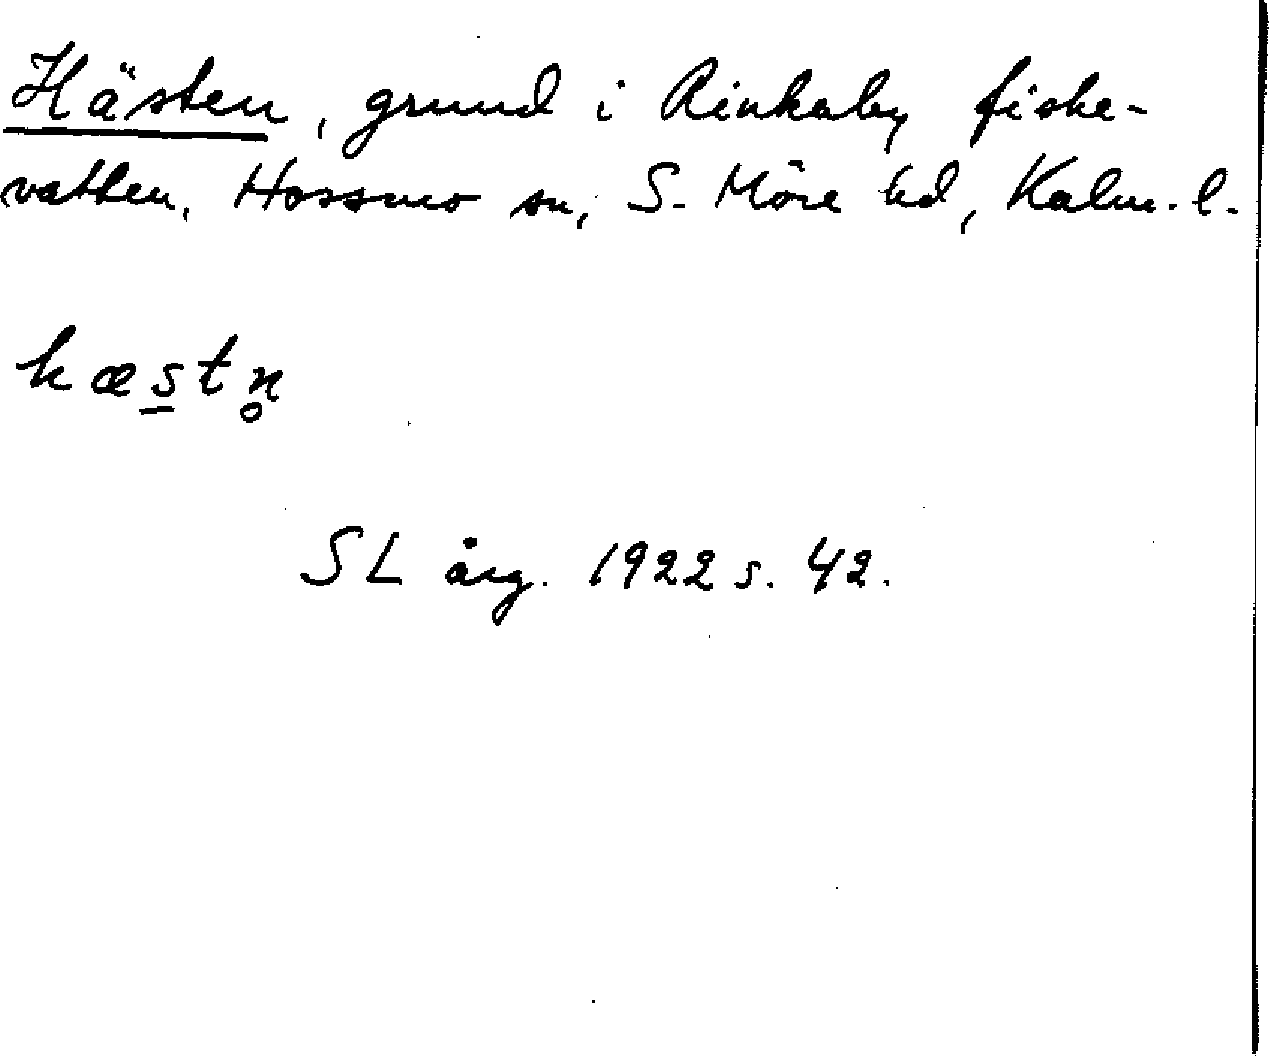 Hästen, grund i Rinkaby fiske-
vatten, Hossmo sn, S. Möre hd, Kalm. l.
hæs̲tn̥
SL årg. 1922 s. 42.